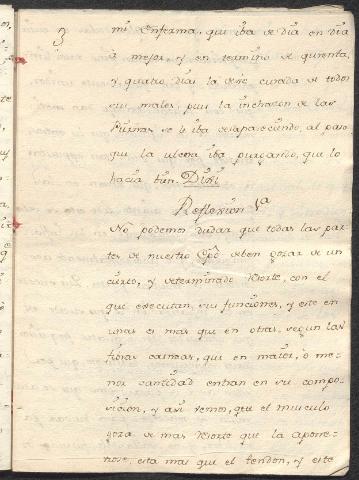 3 mi Enferma, que iba de dia en dia
à mejor, y en termino de quarenta,
y quatro dias la dexe curada de todos
sus males, pues la inchazon de las
Piernas se le iba desapareciendo, al paso
que la ulcera iba purgando, que lo
hacia bien. Dixi
Reflexion 1ª
No podemos dudar que todas las par-
tes de nuestro Cpõ deben gozar de un
cierto, y determinado Resorte, con el
que executan sus funciones, y este en
unas es mas que en otras, segun las
fibras carneas, que en maior, o me-
nor cantidad entran en su compo-
sicion, y asi vemos, que el musculo
goza de mas Resorte que la apone-
rose, esta mas que el tendon, y este